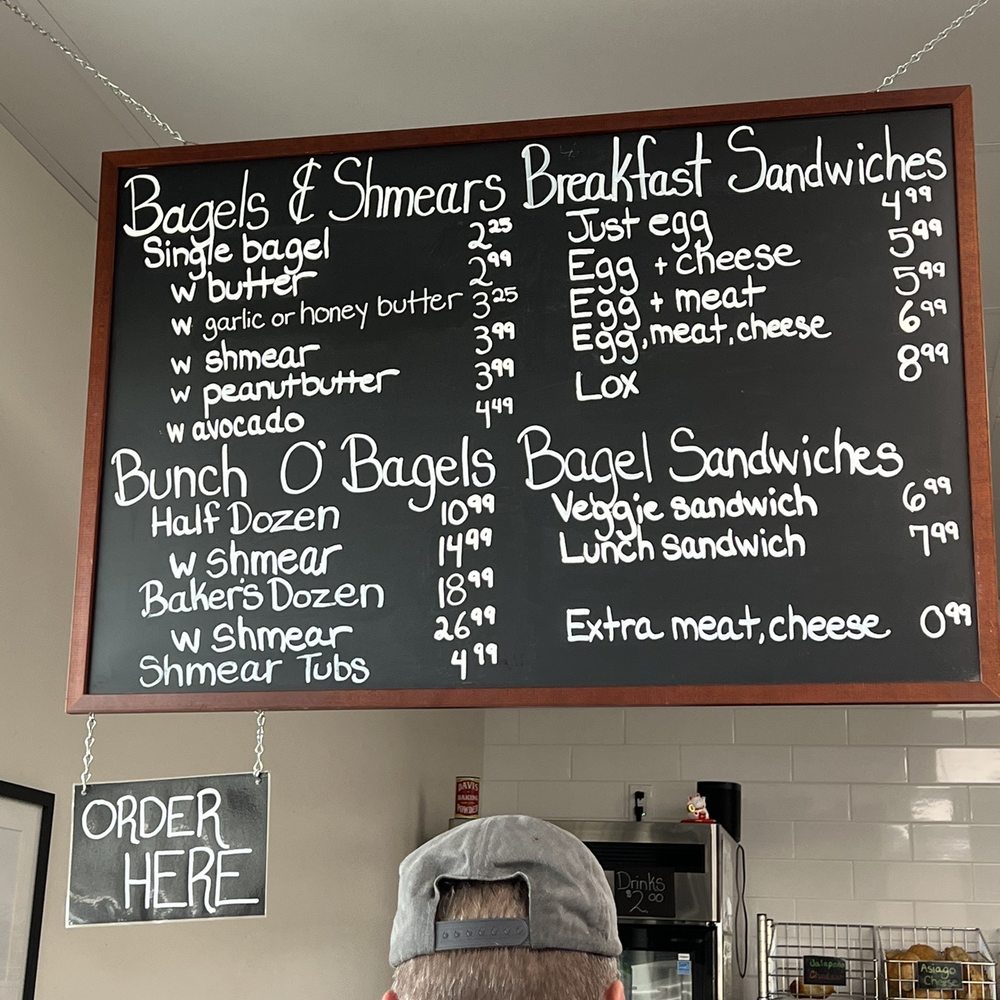 Bagels & Shmears
Single bagel 2.25
w butter 2.99
w garlic or honey butter 3.25
w shmear 3.99
w peanutbutter 3.99
w avocado 4.49
Bunch O' Bagels
Half Dozen 10.99
w shmear 14.99
Baker's Dozen 18.99
w shmear 26.99
Shmear Tubs 4.99
Breakfast Sandwiches
Just egg 4.99
Egg + cheese 5.99
Egg + meat 5.99
Egg, meat, cheese 6.99
Lox 8.99
Bagel Sandwiches
Veggie sandwich 6.99
Lunch sandwich 7.99
Extra meat, cheese 0.99
ORDER
HERE
DAVIS
BAKING
POWDER
Drinks
$2.00
Jalapeño
Cheddar
Asiago
Cheese